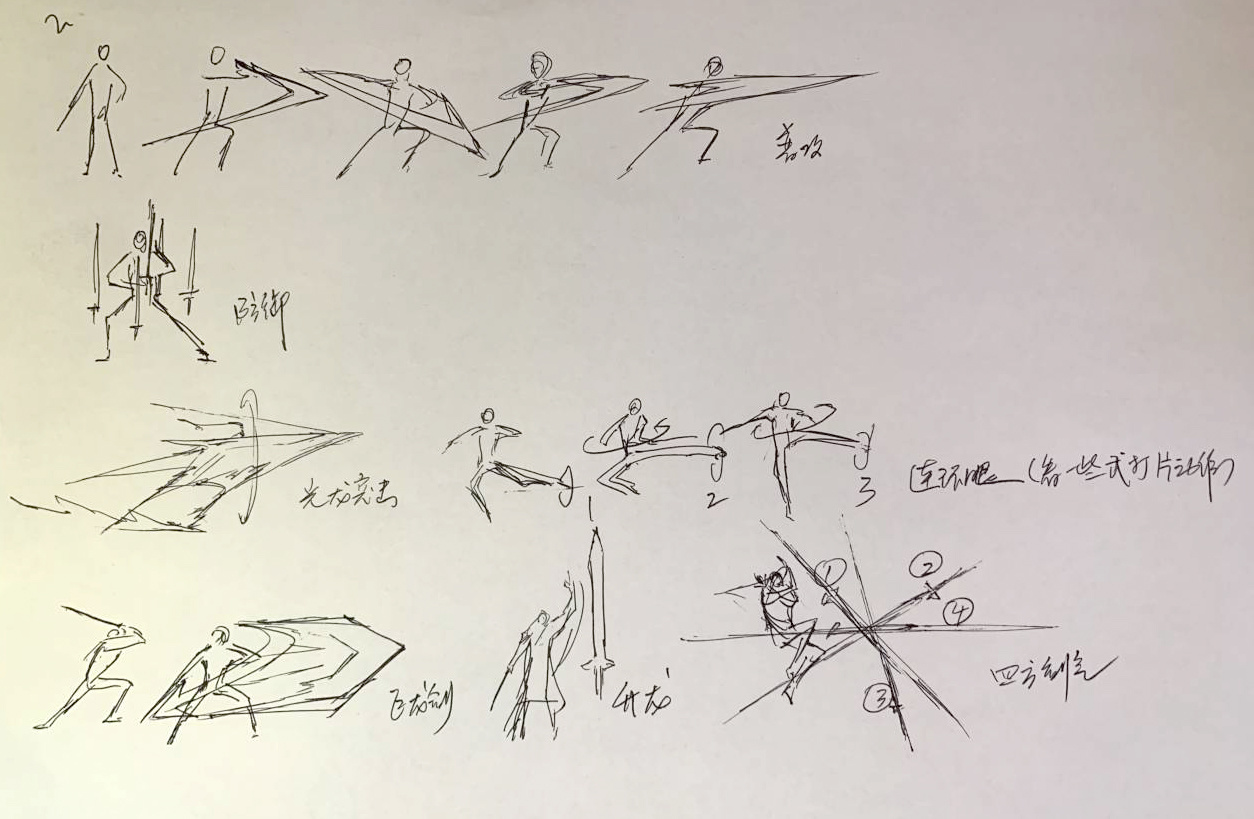 2
普攻
防御
光龙突击
1
2
3
连环腿(看一些武打片动作)
①
②
④
③
飞龙剑
升龙
四方剑气